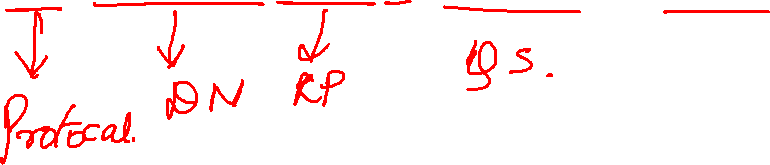 Protocal. DN RP QS.